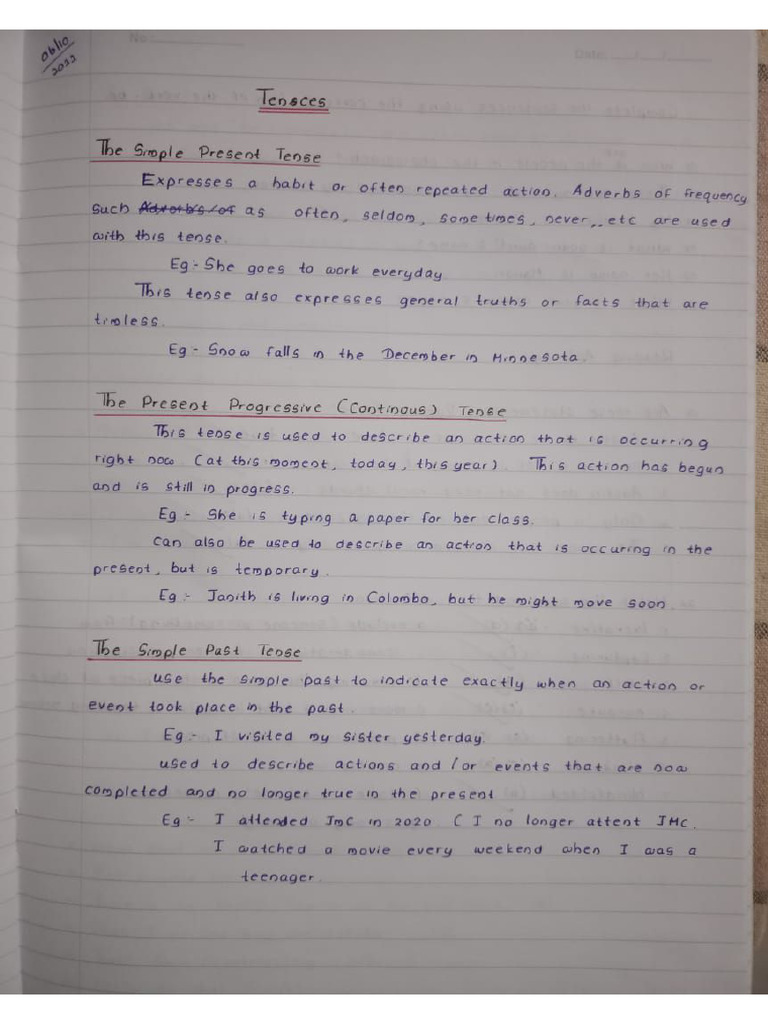 06/10
2022
No:
Date:
Tensces
The Simple Present Tense
Expresses a habit or often repeated action. Adverbs of frequency
such Adverbs of as often, seldom, sometimes, never,, etc are used
with this tense.
Eg:- She goes to work everyday
This tense also expresses general truths or facts that are
timless.
Eg:- Snow falls in the December in Minnesota.
The Present Progressive (Continous) Tense
This tense is used to describe an action that is occurring
right now (at this moment, today, this year). This action has begun
and is still in progress.
Eg:- She is typing a paper for her class.
can also be used to describe an action that is occuring in the
present, but is temporary.
Eg:- Janith is living in Colombo, but he might move soon.
The Simple Past Tense
use the simple past to indicate exactly when an action or
event took place in the past.
Eg:- I visited my sister yesterday.
used to describe actions and /or events that are now
completed and no longer true in the present
Eg:- I attended JMC in 2020 ( I no longer attent JMC.
I watched a movie every weekend when I was a
teenager.